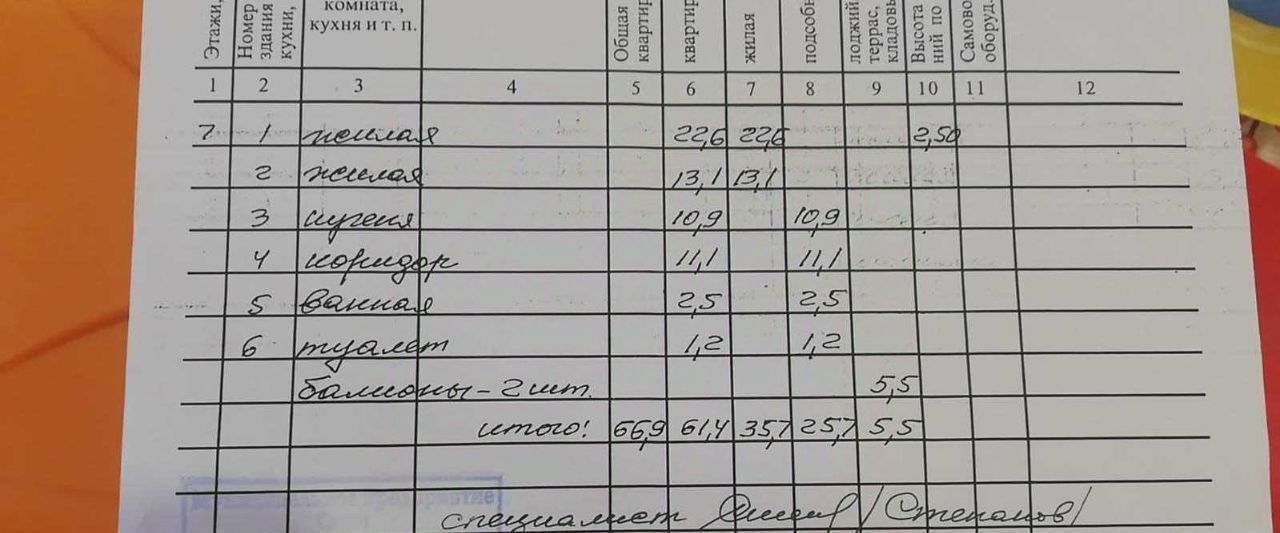 Этажи, Номер здания кухни, комната, кухня и т. п. Общая квартир квартир жилая подсобн лоджий террас, кладовы Высота ний по Самово оборуд.
1 2 3 4 5 6 7 8 9 10 11 12
7 1 жилая 22,6 22,6 2,50
2 жилая 13,1 13,1
3 кухня 10,9 10,9
4 коридор 11,1 11,1
5 ванная 2,5 2,5
6 туалет 1,2 1,2
балконы - 2 шт. 5,5
итого: 66,9 61,4 35,7 25,7 5,5
предприятие
специалист /Степанов/